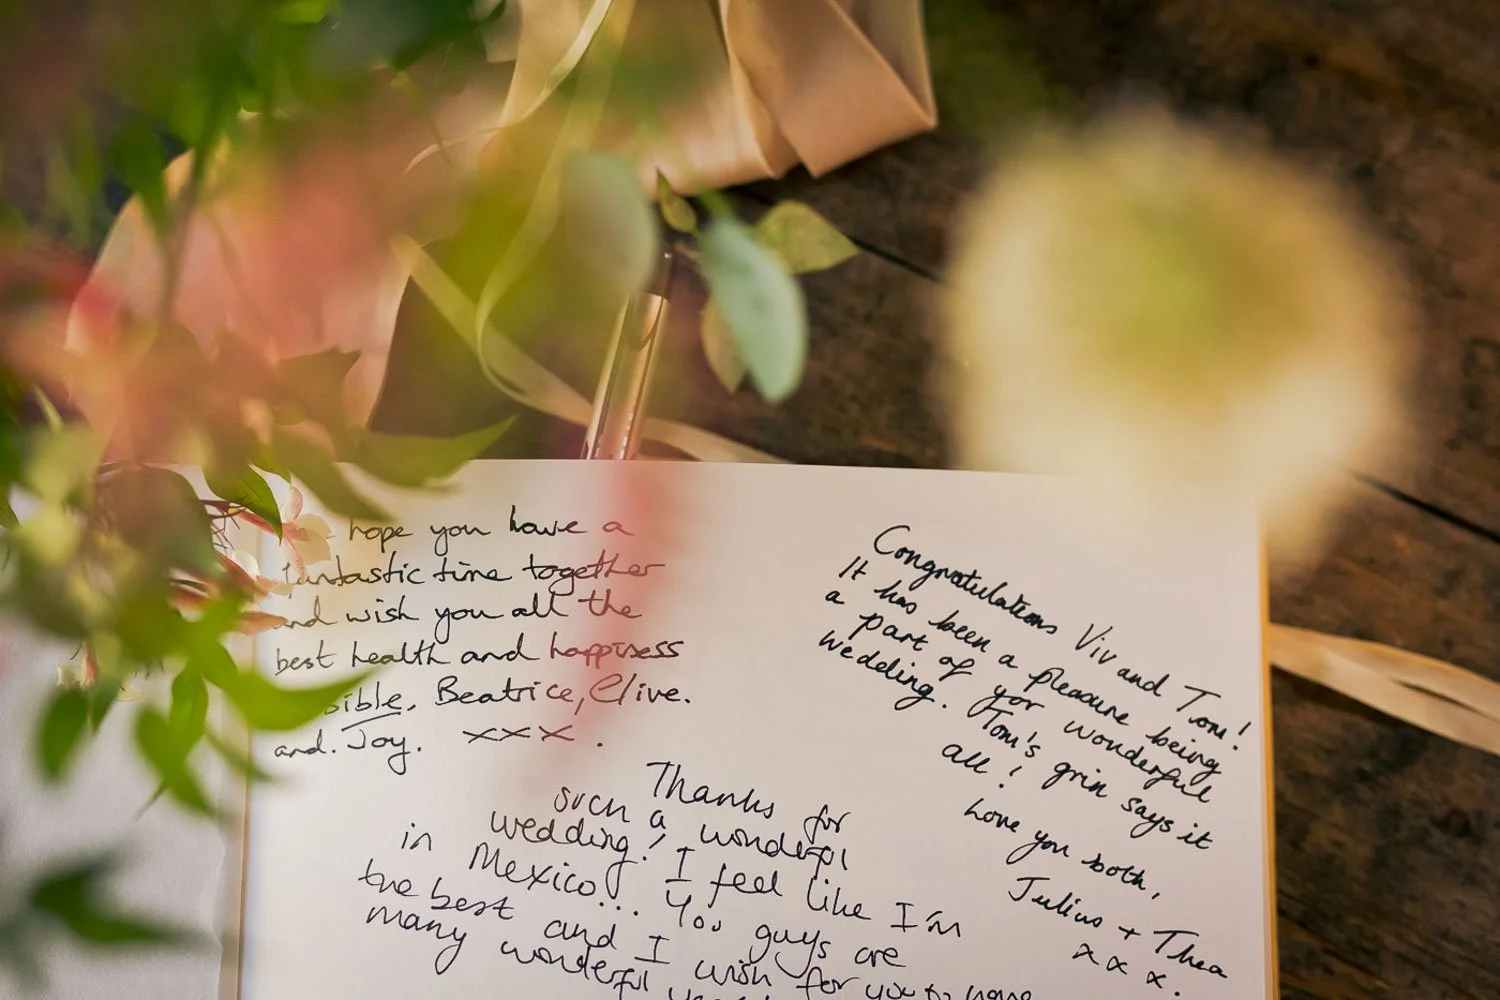 hope you have a
fantastic time together
and wish you all the
best health and happiness
sible, Beatrice, Clive.
and. Joy. xxx.
Congratulations Viv and Tom!
It has been a pleasure being
a part of your wonderful
wedding. Tom's grin says it
all!
Love you both,
Julius + Thea
x x x.
Thanks for
such a wonderful
wedding! I feel like I'm
in Mexico... You guys are
the best and I wish for you to have
many wonderful